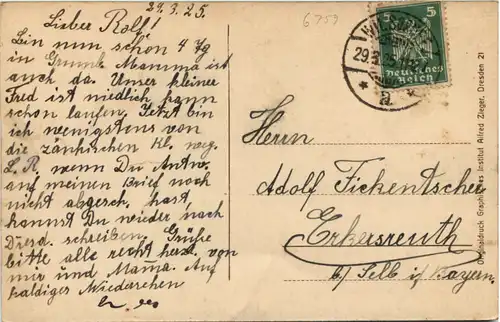 29.3.25.
Lieber Rolf!
Bin nun schon 4 Tg
in Grund. Mamma ist
auch da. Unser kleiner
Fred ist niedlich kann
schon laufen. Jetzt bin
ich wenigstens von
die zänkischen Kl. weg.
L. R. wenn Du Antw.
auf meinen Brief noch
nicht abgesch. hast,
kannst Du wieder nach
Dresd. schreiben. Grüße
bitte alle recht herzl. von
mir und Mama. Auf
baldiges Wiedersehen
6753
5
Deutsches
Reich
29.3.25
a.
Herrn
Adolf Fickentscher
Erkersreuth
b/ Selb i/ Bayern.
Originaldruck Graphisches Institut Alfred Zieger, Dresden 21